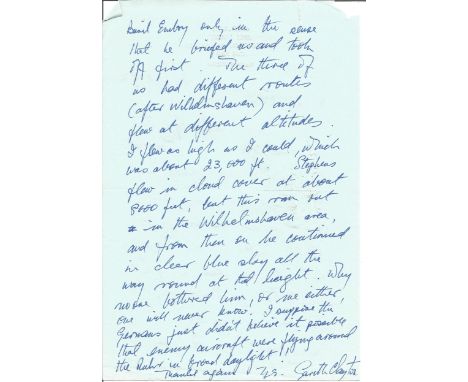 Basil Embry only in the sense
that he briefed us and took
off first. The three of
us had different routes
(after Wilhelmshaven) and
flew at different altitudes.
I flew as high as I could, which
was about 23,000 ft. Stephens
flew in cloud cover at about
8000 feet, but this ran out
in the Wilhelmshaven area,
and from then on he continued
in clear blue sky all the
way round at that height. Why
no one bothered him, or me either,
one will never know. I suppose the
Germans just didn't believe it possible
that enemy aircraft were flying around
the Ruhr in broad daylight!
Thanks again Gareth Clayton